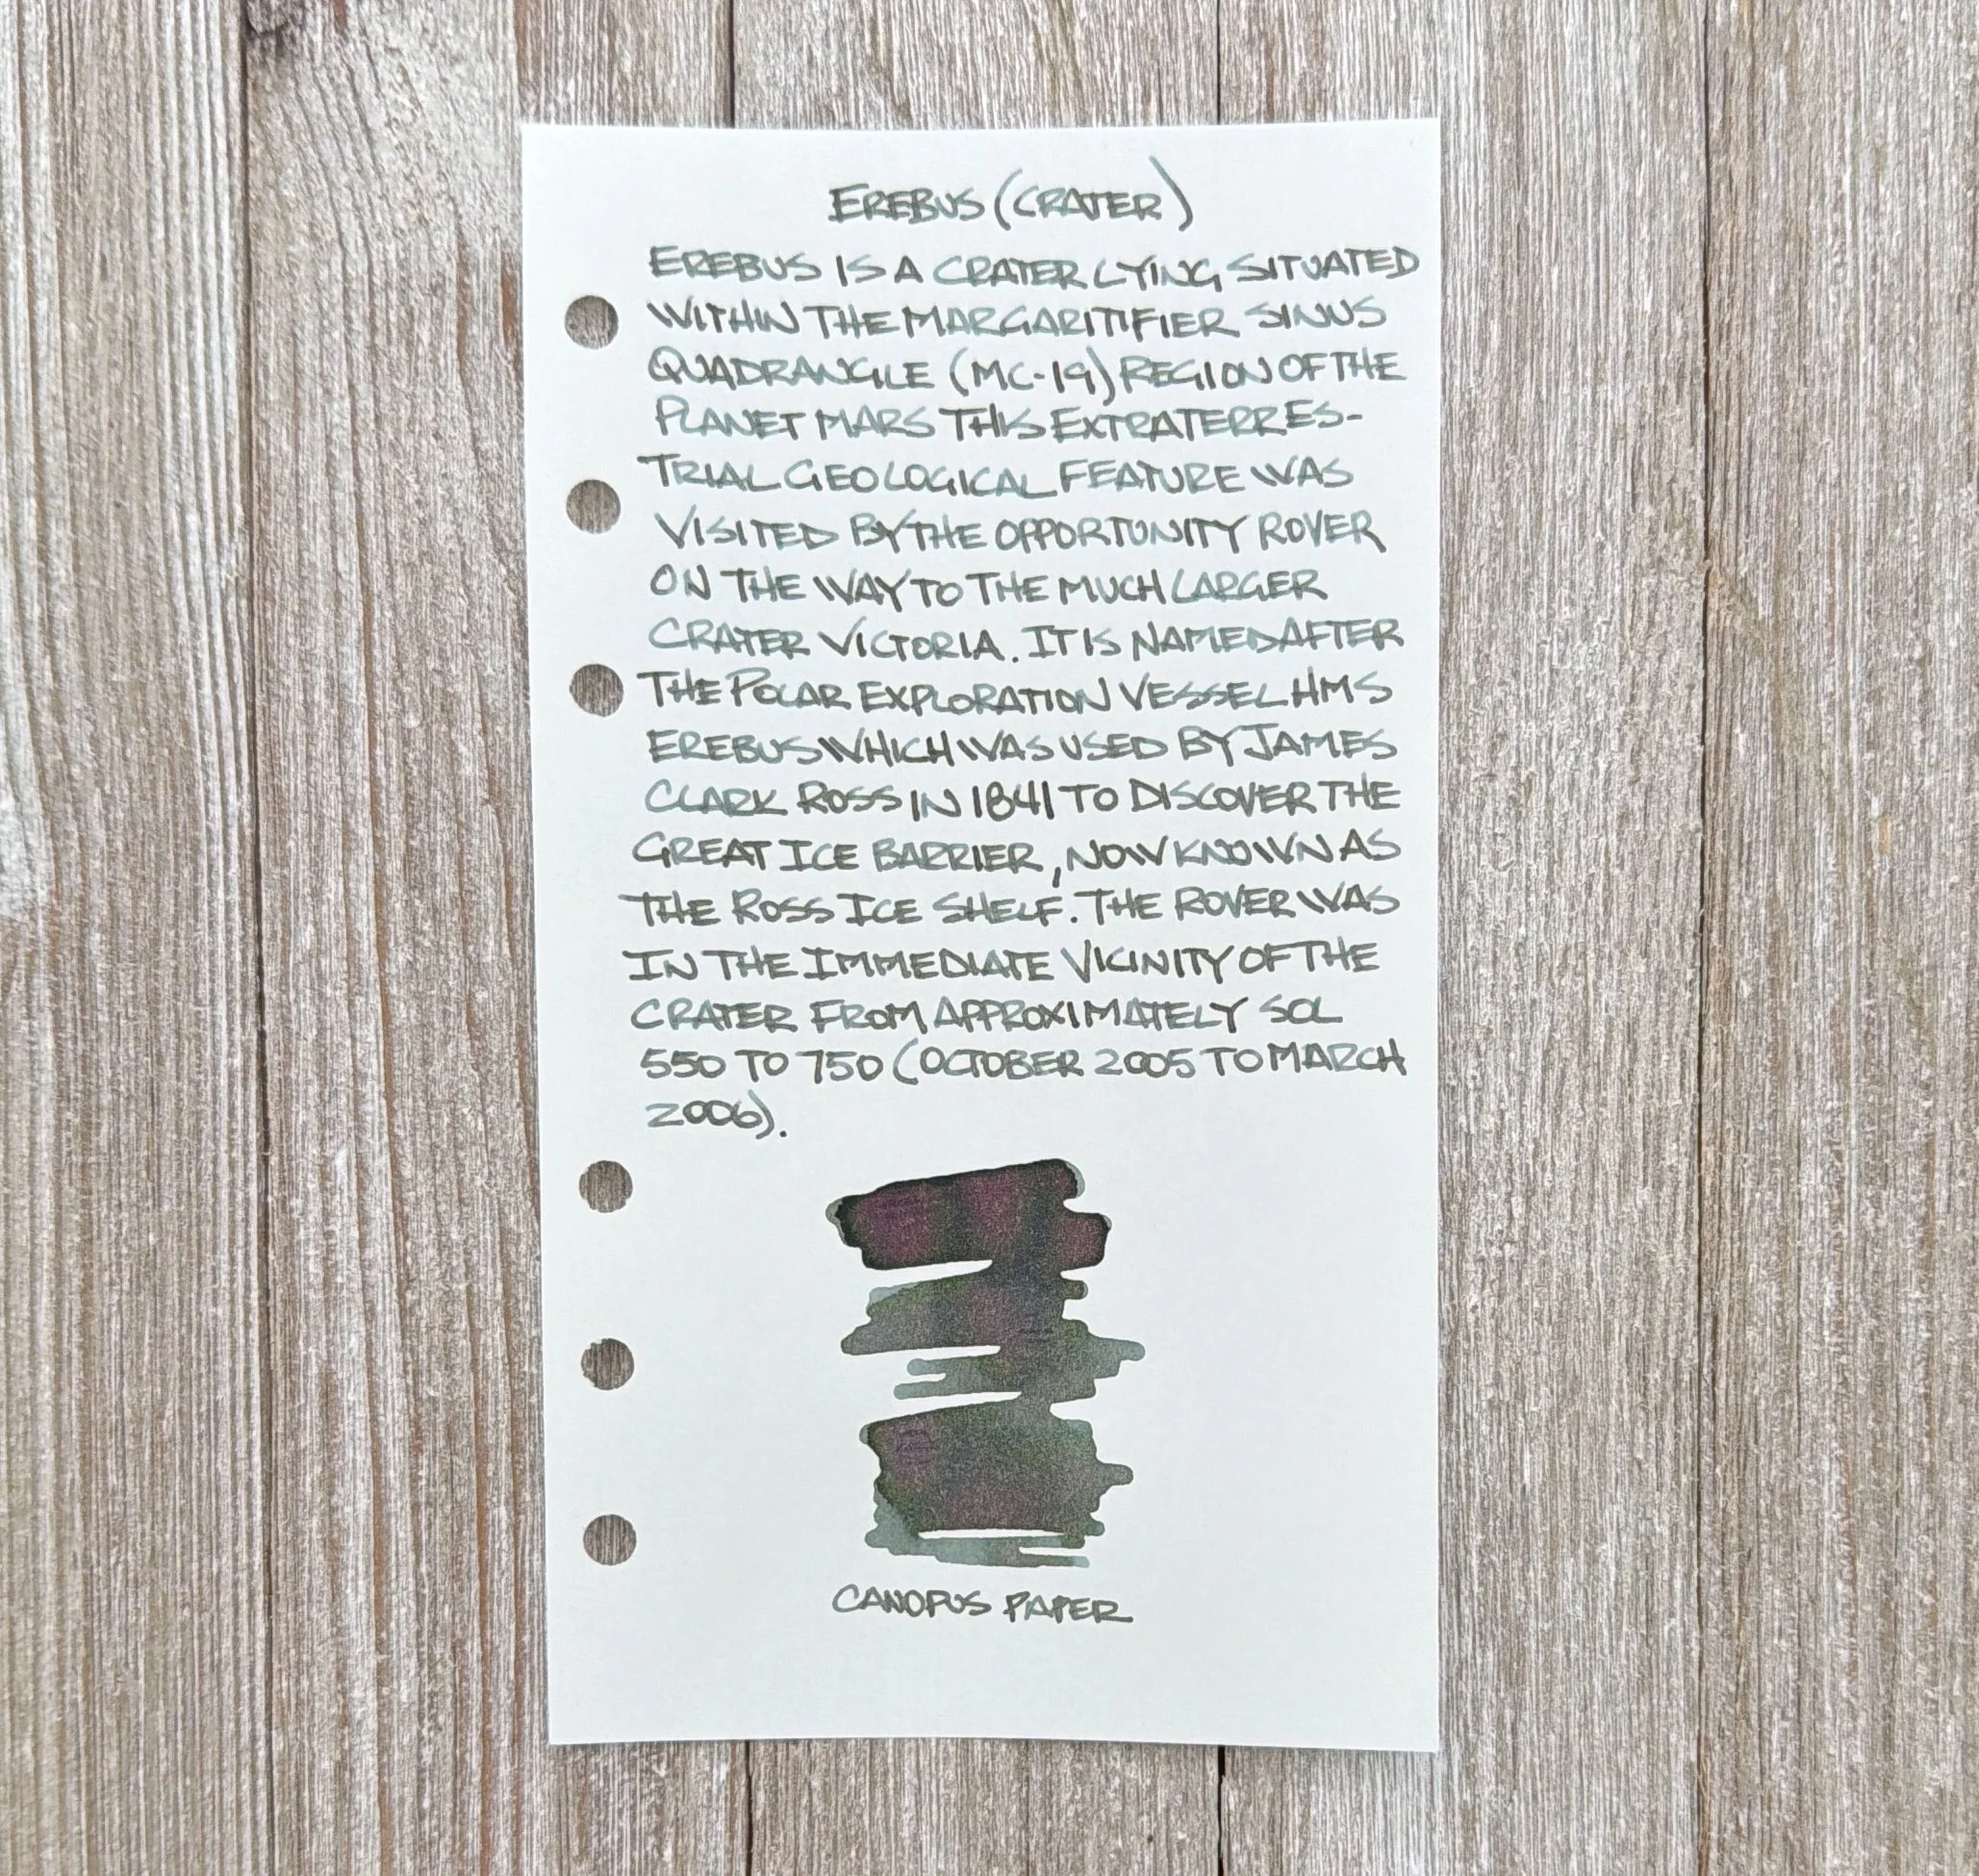 EREBUS (CRATER)
EREBUS IS A CRATER LYING SITUATED
WITHIN THE MARGARITIFIER SINUS
QUADRANGLE (MC-19) REGION OF THE
PLANET MARS THIS EXTRATERRES-
TRIAL GEOLOGICAL FEATURE WAS
VISITED BY THE OPPORTUNITY ROVER
ON THE WAY TO THE MUCH LARGER
CRATER VICTORIA. IT IS NAMED AFTER
THE POLAR EXPLORATION VESSEL HMS
EREBUS WHICH WAS USED BY JAMES
CLARK ROSS IN 1841 TO DISCOVER THE
GREAT ICE BARRIER, NOW KNOWN AS
THE ROSS ICE SHELF. THE ROVER WAS
IN THE IMMEDIATE VICINITY OF THE
CRATER FROM APPROXIMATELY SOL
550 TO 750 (OCTOBER 2005 TO MARCH
2006).
CANOPUS PAPER